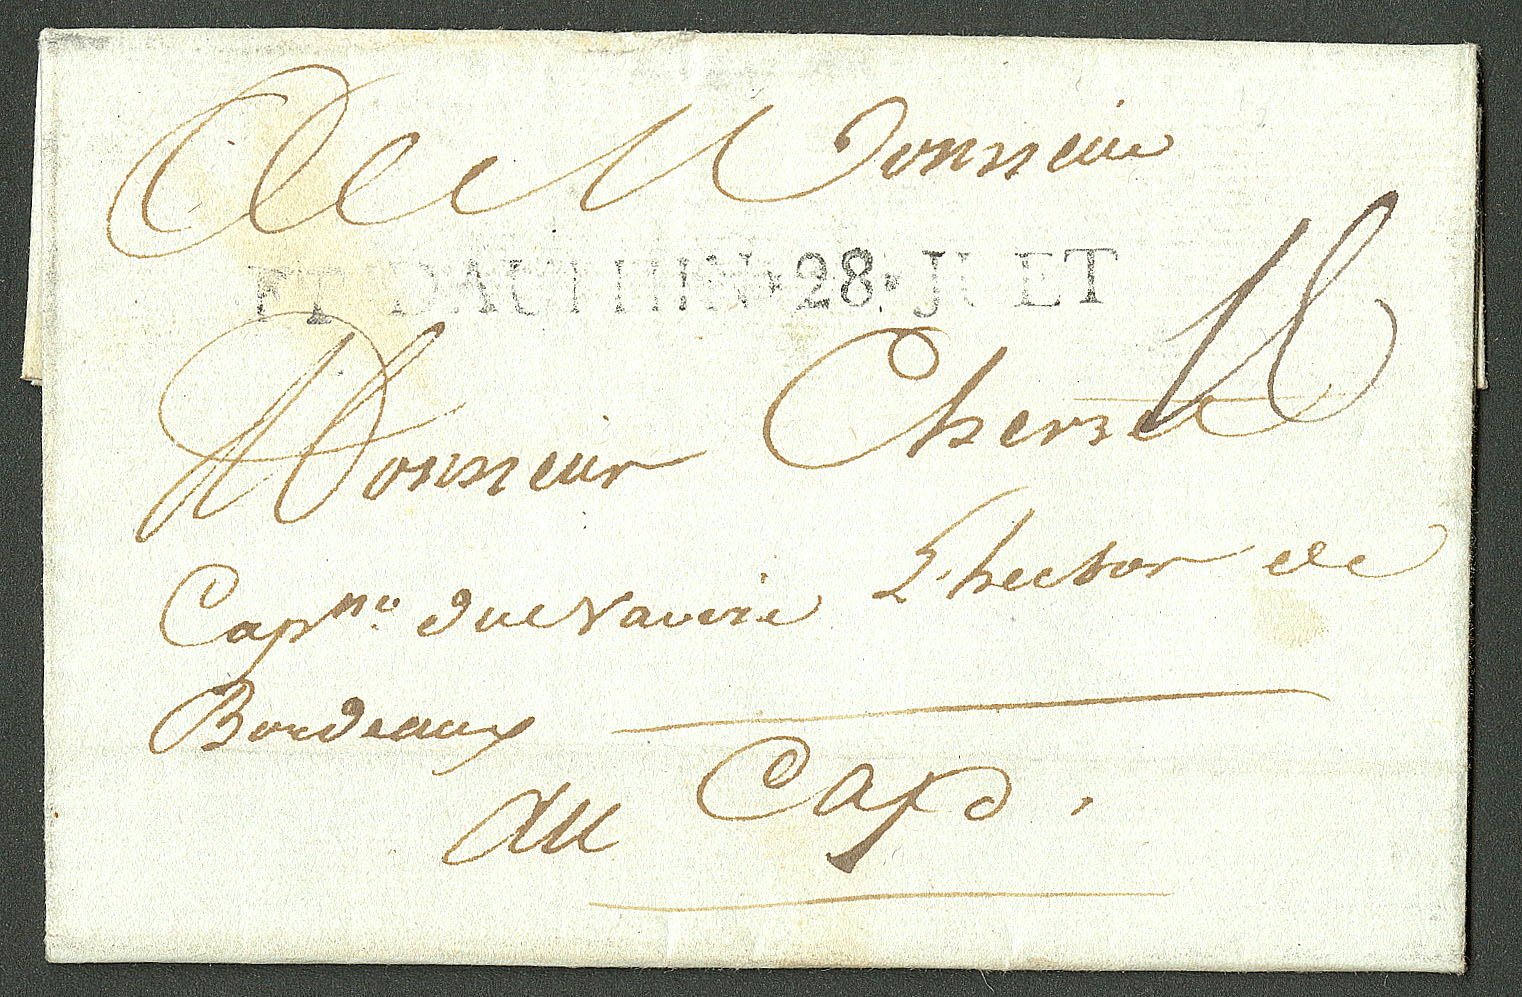 A Monsieur
FT DAUPHIN·28·JUET
Monsieur Cherzel
Capne du Navire L'hector de
Bordeaux
au Cap